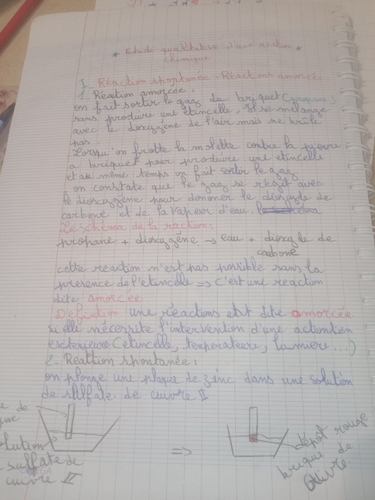 * Etude qualitative d'une réaction *
chimique
I. Réaction spontanée - Réactions amorcée:
1. Réaction amorcée:
on fait sortir le gaz de briquet (propane)
sans produire une étincelle. Il se mélange
avec le dioxygène de l'air mais se brûle
pas.
Lorsqu'on frotte la molette contre la pierre
a briquet pour produire une etincelle
et au même temps on fait sortir le gaz
on constate que le gaz se réagit avec
le dioxygène pour donner le dioxyde de
carbone et de la vapeur d'eau
Le schéma de la réaction:
propane + dioxygène → eau + dioxyde de
carbone
cette reaction n'est pas possible sans la
presence de l'étincelle => c'est une reaction
dite amorcée
Définition une réactions etat dite amorcée
si elle nécessite l'intervention d'une
exterieure (etincelle, temperature, lumière...)
2. Reaction spontanée:
on plonge une plaque de zinc dans une solution
de sulfate de cuivre II
de
solution
sulfate de
cuivre II
=>
dépôt rouge
brique de
Cuivre